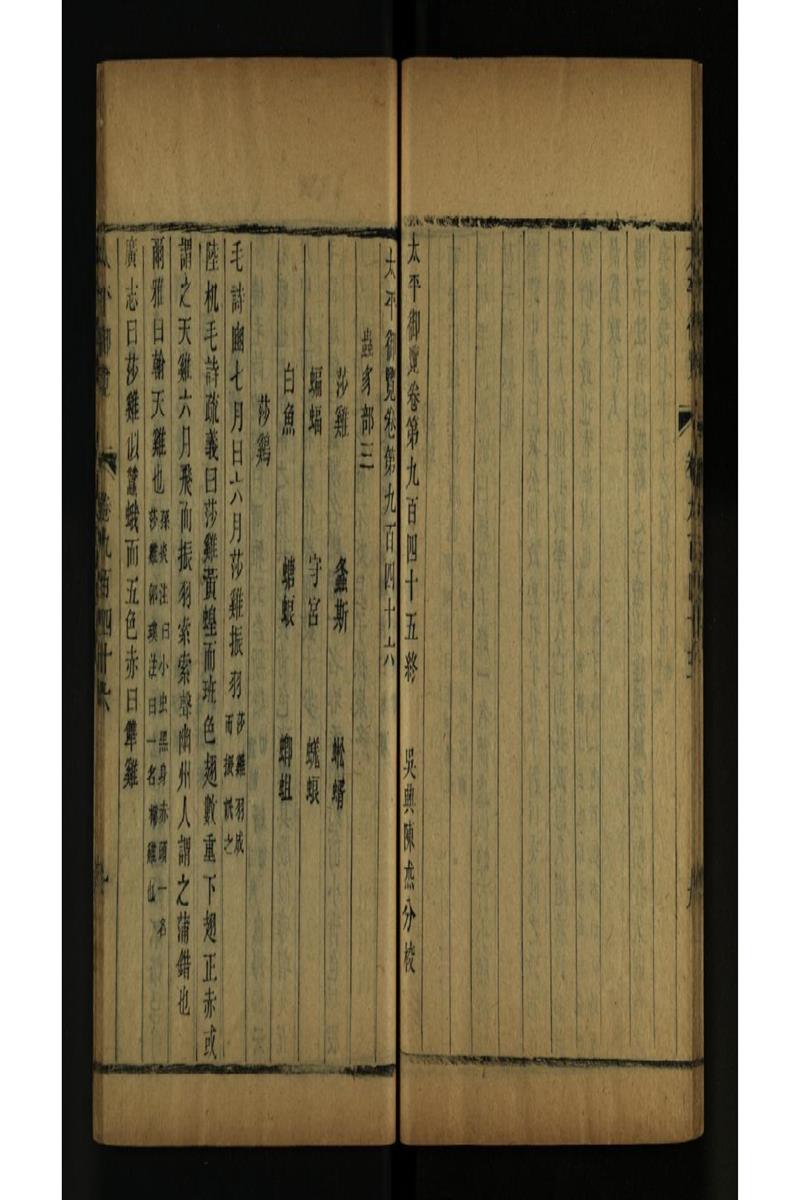 太平御覽卷第九百四十五終　吳興陳杰分校
太平御覽卷第九百四十六
蟲豸部三
莎雞　螽斯　蜙蝑
蝙蝠　守宮　蜣蜋
白魚　螗蜋　螂蛆
莎鷄
毛詩豳七月曰六月莎雞振羽莎雞羽成
而振訊之
陸机毛詩疏義曰莎雞黃蝗而班色翅數重下翅正赤或
謂之天雞六月飛而振羽索索聲幽州人謂之蒲錯也
爾雅曰翰天雞也孫炎注曰小虫黑身赤頭一名
莎雞郭璞注曰一名樗雞也
廣志曰莎雞似蠶蛾而五色赤曰雞
卷九百四十六
九